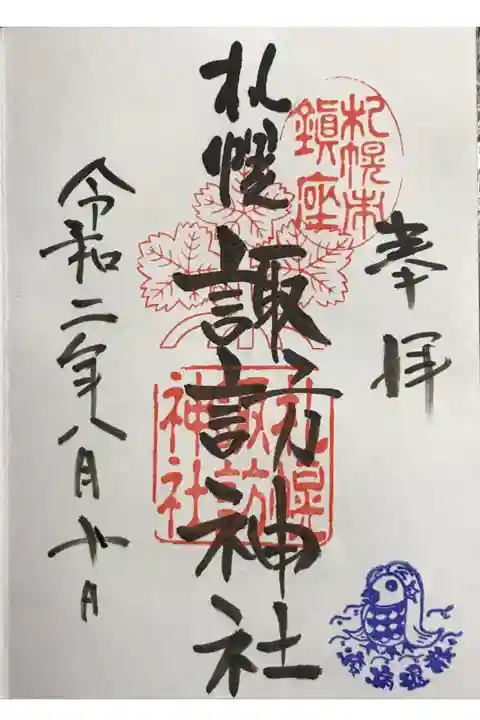 奉拝
札幌市
鎮座
札幌諏訪神社
札幌
諏訪
神社
令和二年八月十日
疫病退散